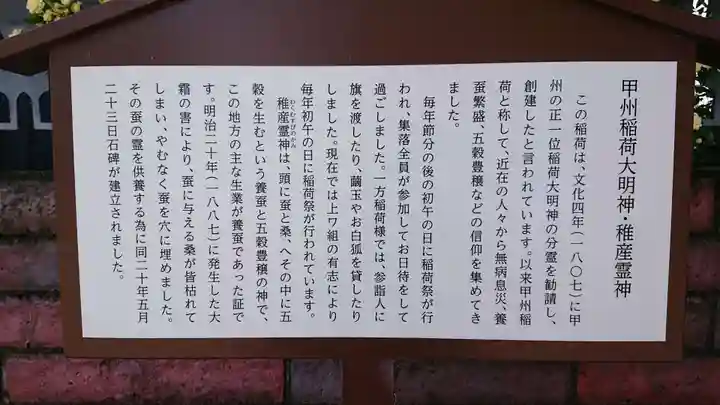 甲州稲荷大明神・稚産霊神
この稲荷は、文化四年(一八〇七)に甲
州の正一位稲荷大明神の分霊を勧請し、
創建したと言われています。以来甲州稲
荷と称して、近在の人々から無病息災、養
蚕繁盛、五穀豊穣などの信仰を集めてき
ました。
毎年節分の後の初午の日に稲荷祭が行
われ、集落全員が参加してお日待をして
過ごしました。一方稲荷様では、参詣人に
旗を渡したり、繭玉やお白狐を貸したり
しました。現在では上ワ組の有志により
毎年初午の日に稲荷祭が行われています。
わくむすびのかみ
稚産霊神は、頭に蚕と桑、へその中に五
穀を生むという養蚕と五穀豊穣の神で、
この地方の主な生業が養蚕であった証で
す。明治二十年(一八八七)に発生した大
霜の害により、蚕に与える桑が皆枯れて
しまい、やむなく蚕を穴に埋めました。
その蚕の霊を供養する為に同二十年五月
二十三日石碑が建立されました。